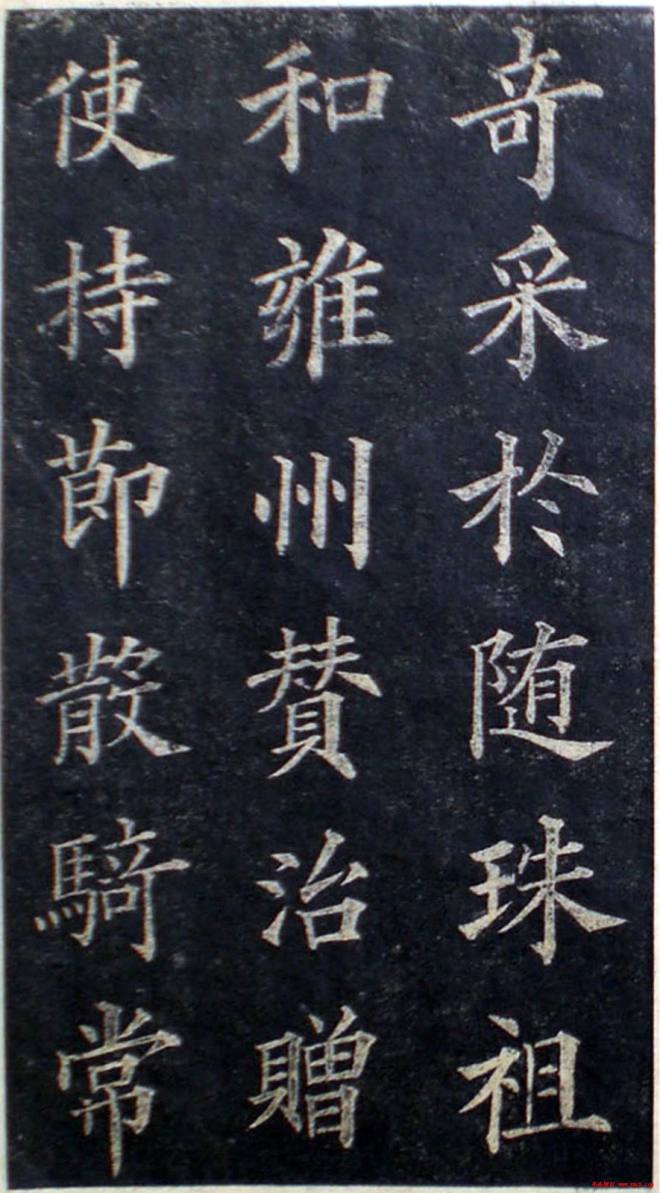 奇采於随珠祖
和雍州賛治贈
使持節散騎常